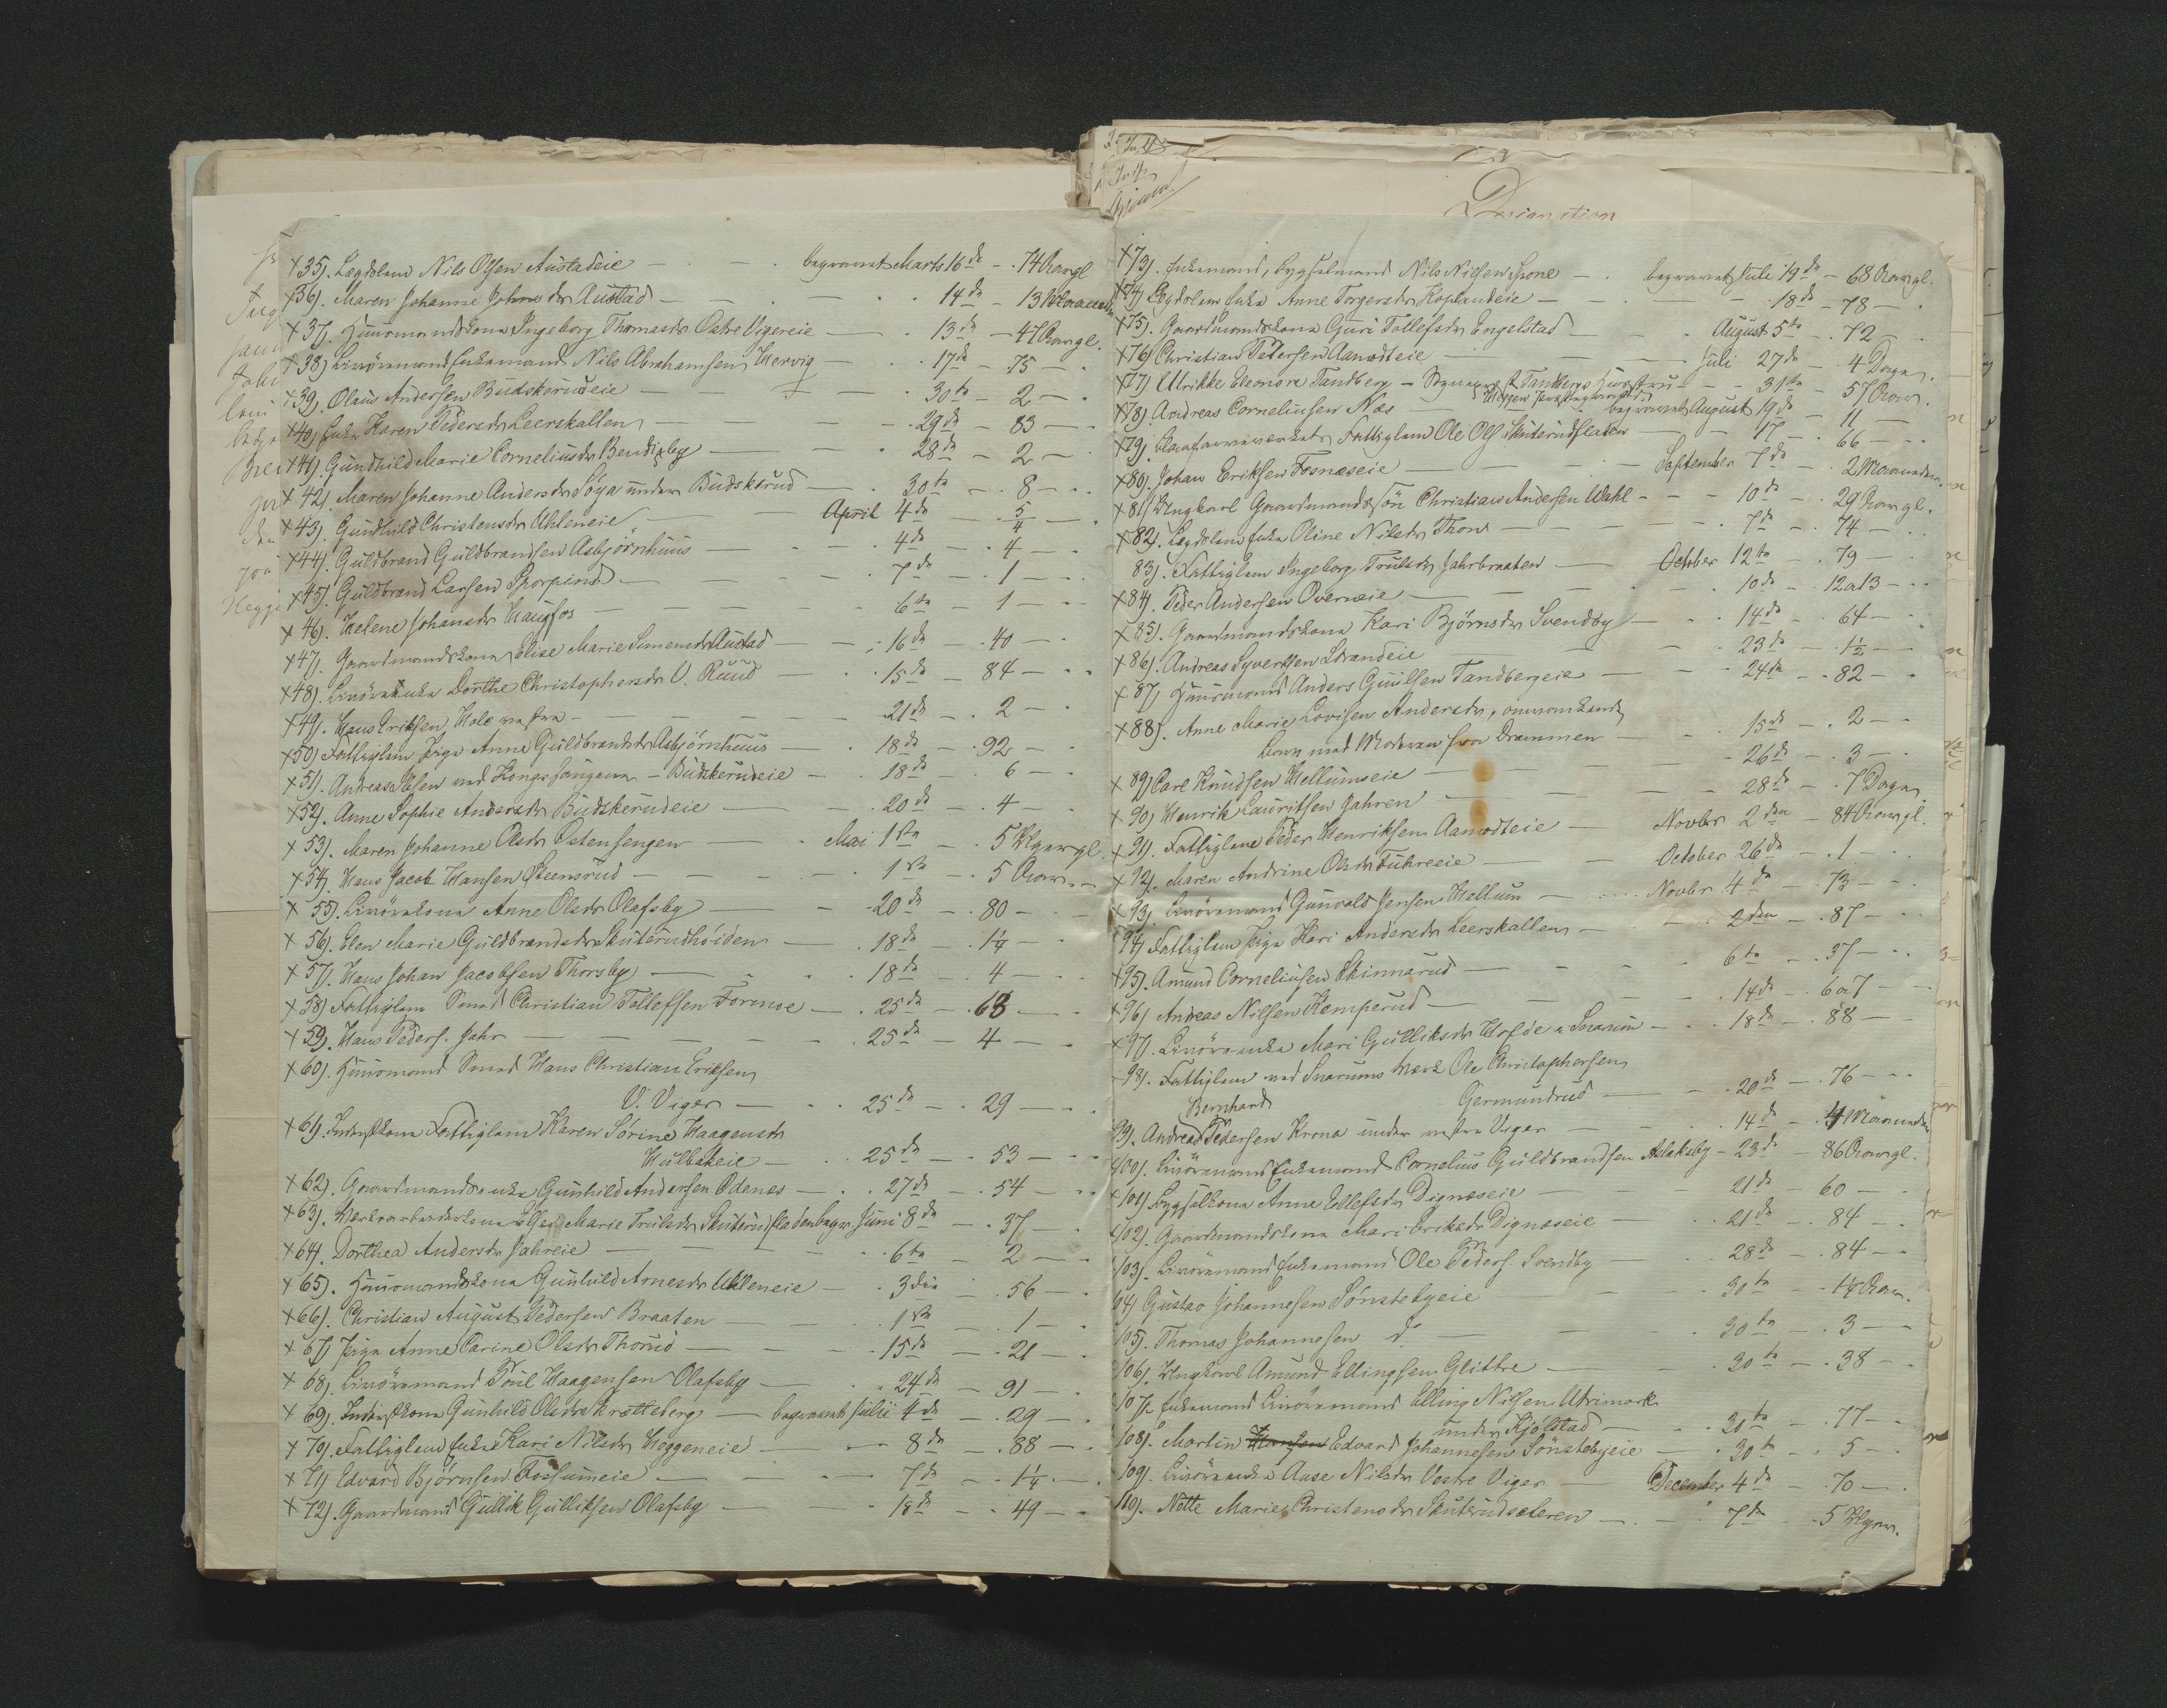 Designation
x 35). Lægdslem Nils Olsen Austadeie — begravet Marts 16de — 74 Aargl
x 36). Maren Johanne Johnsdr Austad — 14de — 13 Maaneder
x 37). Huusmandskona Ingeborg Thomasdr Østre Vigereie — 13de — 47 Aargl.
x 38) Livöremand Enkemand Nils Abrahamsen Hervig — 17de — 75 —
x 39). Olaus Andersen Budskerudeie — 30te — 2 —
x 40) Enke Karen Pedersdr Leerskallen — 29de — 83 —
x 41). Gundhild Marie Corneliusdr Bendigby — 28de — 2 —
x 42). Maren Johanne Andersdr Söya under Budskerud — 30te — 8 —
x 43). Gundhild Christensdr Uhleneie — April 4de — 5/4 —
x 44). Guldbrand Guldbrandsen Asbjörnhuus — 4de — 4 —
x 45). Guldbrand Larsen Skorpiud — 7de — 1 —
x 46). Helene Johansdr Haugfos — 6te — 1 —
x 47). Gaardmandskona Elise Marie Simensdr Austad — 16de — 40 —
x 48). Livöreenke Dorthe Christophersdr V. Ruud — 15de — 84 —
x 49). Hans Eriksen Hole vestre — 21de — 2 —
x 50) Fattiglem Pige Anne Guldbrandsdr Asbjörnhuus — 18de — 92 —
x 51). Andreas Olsen ved Kongssaugene — Budskerudeie — 18de — 6 —
x 52). Anne Sophie Andersdr Budskerudeie — 20de — 4 —
x 53). Maren Johanne Olsdr Østensengen — Mai 1ste — 5 Ugergl.
x 54). Hans Jacob Hansen Steensrud — 1ste — 5 Aar —
x 55). Livörekona Anne Olsdr Olafsby — 20de — 80 —
x 56). Elen Marie Guldbrandsdr Skuterudhöiden — 18de — 1¼ —
x 57). Hans Johan Jacobsen Thorsby — 18de — 4 —
x 58) Fattiglem Smed Christian Tollefsen Formoe — 25de — 68 —
x 59). Hans Peders. Jahr — 25de — 4 —
x 60). Huusmand Smed Hans Christian Eriksen
V. Viger — 25de — 29 —
x 61). Inderstkona Fattiglem Karen Sörine Haagensdr
Hulbakeie — 25de — 53 —
x 62). Gaardmandsenke Gunhild Andersen Odenes — 27de — 54 —
x 63). Værksarbeiderkona Else Marie Trulsdr Skuterudfladen begr. Juni 8de — 37 —
x 64). Dorthea Andersdr Jahreie — 6te — 2 —
x 65). Huusmandskona Gunhild Arnesdr Uhleneie — 3die — 56 —
x 66). Christian August Pedersen Braaten — 1ste — 1 —
x 67) Pige Anne Carine Olsdr Thorud — 15de — 21 —
x 68). Livöremand Poul Haagensen Olafsby — 24de — 91 —
x 69). Inderstkona Gunhild Olsdr Skrætteberg — begravet Julii 4de — 29 —
x 70). Fattiglem Enke Kari Nilsdr Heggeneie — 8de — 88 —
x 71) Edvard Björnsen Fossumeie — 7de — 1¼ —
x 72). Gaardmand Gullik Gulliksen Olafsby — 18de — 49 —
x 73). Enkemand, Bygselmand Nils Nilsen Spone — begravet Juli 19de — 68 Aargl.
x 74) Lægdslem Enke Anne Torgersdr Koplandeie — 18de — 78 —
x 75). Gaardmandskona Guri Tollefsdr Engelstad — August 5te — 72 —
x 76) Christian Petersen Aamodteie — Juli 27de — 4 Dage.
x 77) Ulrikke Eleonore Tandberg — Sognepræst Tandbergs Huustru — 31te — 57 Aar.
x 78). Andreas Corneliusen Næs — begravet August 19de — 11 —
x 79). Blaafarveværkets Fattiglem Ole Ols. Skuterudfladen — 17 — 66 —
x 80). Johan Eriksen Fosnæseie — September 7de — 2 Maaneder.
x 81) Ungkarl Gaardmandssön Christian Andersen Wahl — 10de — 29 Aargl.
x 82). Lægdslem Enke Oline Nilsdr Thon — 7de — 74 —
83). Fattiglem Ingeborg Trulsdr Jahrbraaten — October 12te — 79 —
x 84). Peder Andersen Overneie — 10de — 12 a 13 —
x 85). Gaardmandskona Kari Björnsdr Svendby — 14de — 64 —
x 86). Andreas Syvertsen Strandeie — 23de — 1½ —
x 87) Huusmand Anders Guulsen Tandbergeie — 24de — 82 —
x 88). Anne Marie Lovisen Andersdr, omvankende
Barn med Moderen fra Drammen — 15de — 2 —
x 89) Carl Knudsen Hellumseie — 26de — 3 —
x 90) Henrik Lauritsen Jahren — 28de — 7 Dage
x 91). Fattiglem Peder Henriksen Aamodteie — Novbr 2den — 84 Aargl.
x 92). Maren Andrine Olsdr Tuhreeie — October 26de — 1 —
x 93). Livöremand Gunvald Jensen Hellum — Novbr. 4de — 73 —
x 94) Fattiglem Pige Kari Andersdr Leerskallen — 2den — 87 —
x 95). Amund Corneliusen Skinnarud — 6te — 37 —
x 96) Andreas Nilsen Kamperud — 14de — 6 a 7 —
x 97). Livöreenke Mari Gulliksdr Hofde i Snarum — 18de — 88 —
98). Fattiglem ved Snarums Værk Ole Christophersen
Germundrud — 20de — 76 —
Bernhard
99). Andreas Pedersen Krona under vestre Viger — 14de — 4 Maaneder
100). Livöremand Enkemand Cornelius Guldbrandsen Aslaksby — 23de — 86 Aargl.
x 101). Bygselkona Anne Ellefsdr Dignæseie — 21de — 60 —
102). Gaardmandskona Mari Eriksdr Dignæseie — 21de — 84 —
103). Livöremand Enkemand Ole Peders. Svendby — 28de — 84 —
104) Gustav Johannesen Sönstebyeie — 30te — 1¼ Aar.
105). Thomas Johannesen do — 30te — 3 —
106). Ungkarl Amund Ellingsen Glittre — 30te — 38 —
107). Enkemand Livöremand Elling Nilsen Utrimark
under Kjölstad — 30te — 77 —
108). Martin Hansen Edvard Johannesen Sönstebyeie — 30te — 5 —
109). Livöreenke Aase Nilsdr Vestre Viger — December 4de — 70 —
110). Nette Marie Christensdr Skuterudsæteren — 7de — 5 Uger.